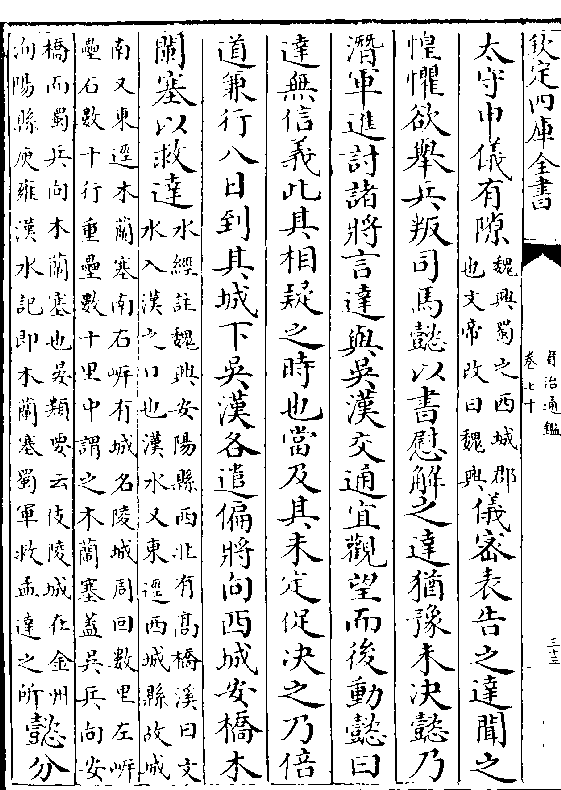 欽定四庫全書
資治通鑑
卷七十
三十三
太守申儀有隙魏興蜀之西城郡
也文帝改曰魏興儀密表告之達聞之
惶懼欲舉兵叛司馬懿以書慰解之達猶豫未決懿乃
潛軍進討諸將言達與吳漢交通宜觀望而後動懿曰
達無信義此其相疑之時也當及其未定促決之乃倍
道兼行八日到其城下吳漢各遣偏將向西城安橋木
闌塞以救達水經註魏興安陽縣西北有高橋溪曰文
水入漢之口也漢水又東逕西城縣故城
南又東逕木蘭塞南右岍有城名陵城周回數里左岍
壘石數十行重壘數十里中謂之木蘭塞蓋吳兵向安
橋而蜀兵向木蘭塞也吳類要云伎陵城在金州
洵陽縣庾雍漢水記即木蘭塞蜀軍救孟達之所懿分